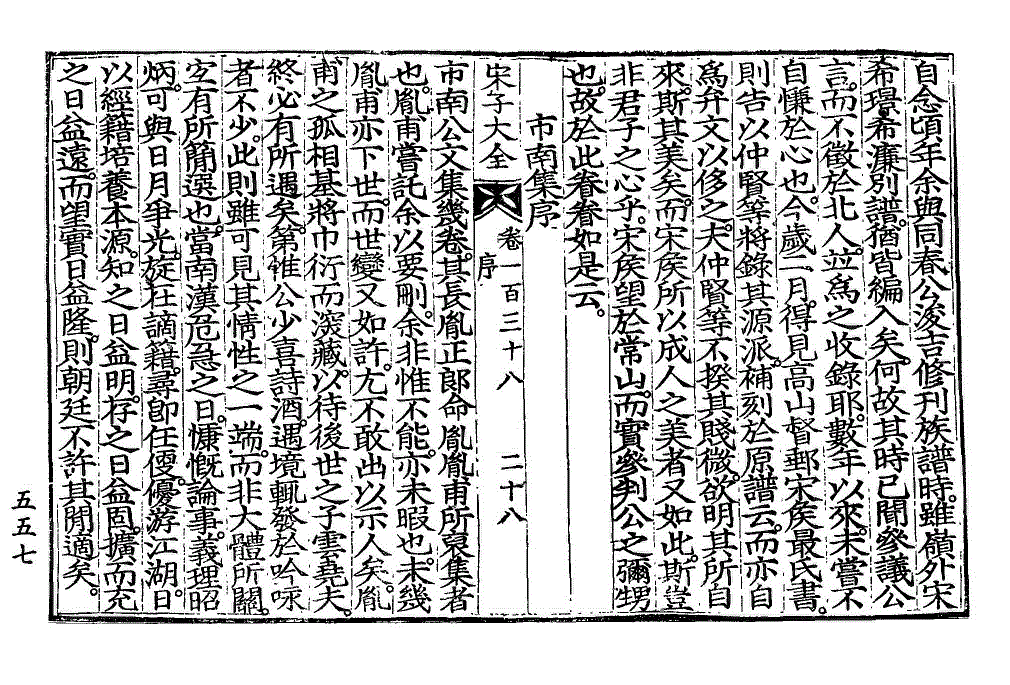 自念頃年余與同春公浚吉修刊族譜時。雖嶺外宋
希璟,希濂別譜。猶皆編入矣。何故其時已聞參議公
言。而不徵於北人。並爲之收錄耶。數年以來。未嘗不
自慊於心也。今歲二月。得見高山督郵宋矦最氏書。
則告以仲賢等將錄其源派。補刻於原譜云。而亦自
爲弁文以侈之。夫仲賢等不揆其賤微。欲明其所自
來。斯其美矣。而宋矦所以成人之美者又如此。斯豈
非君子之心乎。宋矦望於常山。而實參判公之彌甥
也。故於此眷眷如是云。
市南集序
宋子大全
卷一百三十八
序
二十八
市南公文集幾卷。其長胤正郞命胤胤甫所裒集者
也。胤甫嘗託余以要刪。余非惟不能。亦未暇也。未幾
胤甫亦下世。而世變又如許。尤不敢出以示人矣。胤
甫之孤相基將巾衍而深藏。以待後世之子雲堯夫。
終必有所遇矣。第惟公少喜詩酒。遇境輒發於吟咏
者不少。此則雖可見其情性之一端。而非大體所關。
宐有所簡選也。當南漢危急之日。慷慨論事。義理昭
炳。可與日月爭光。旋在謫籍。尋卽任便。優游江湖。日
以經籍培養本源。知之日益明。存之日益固。擴而充
之日益遠。而望實日益隆。則朝廷不許其閒適矣。
五五七